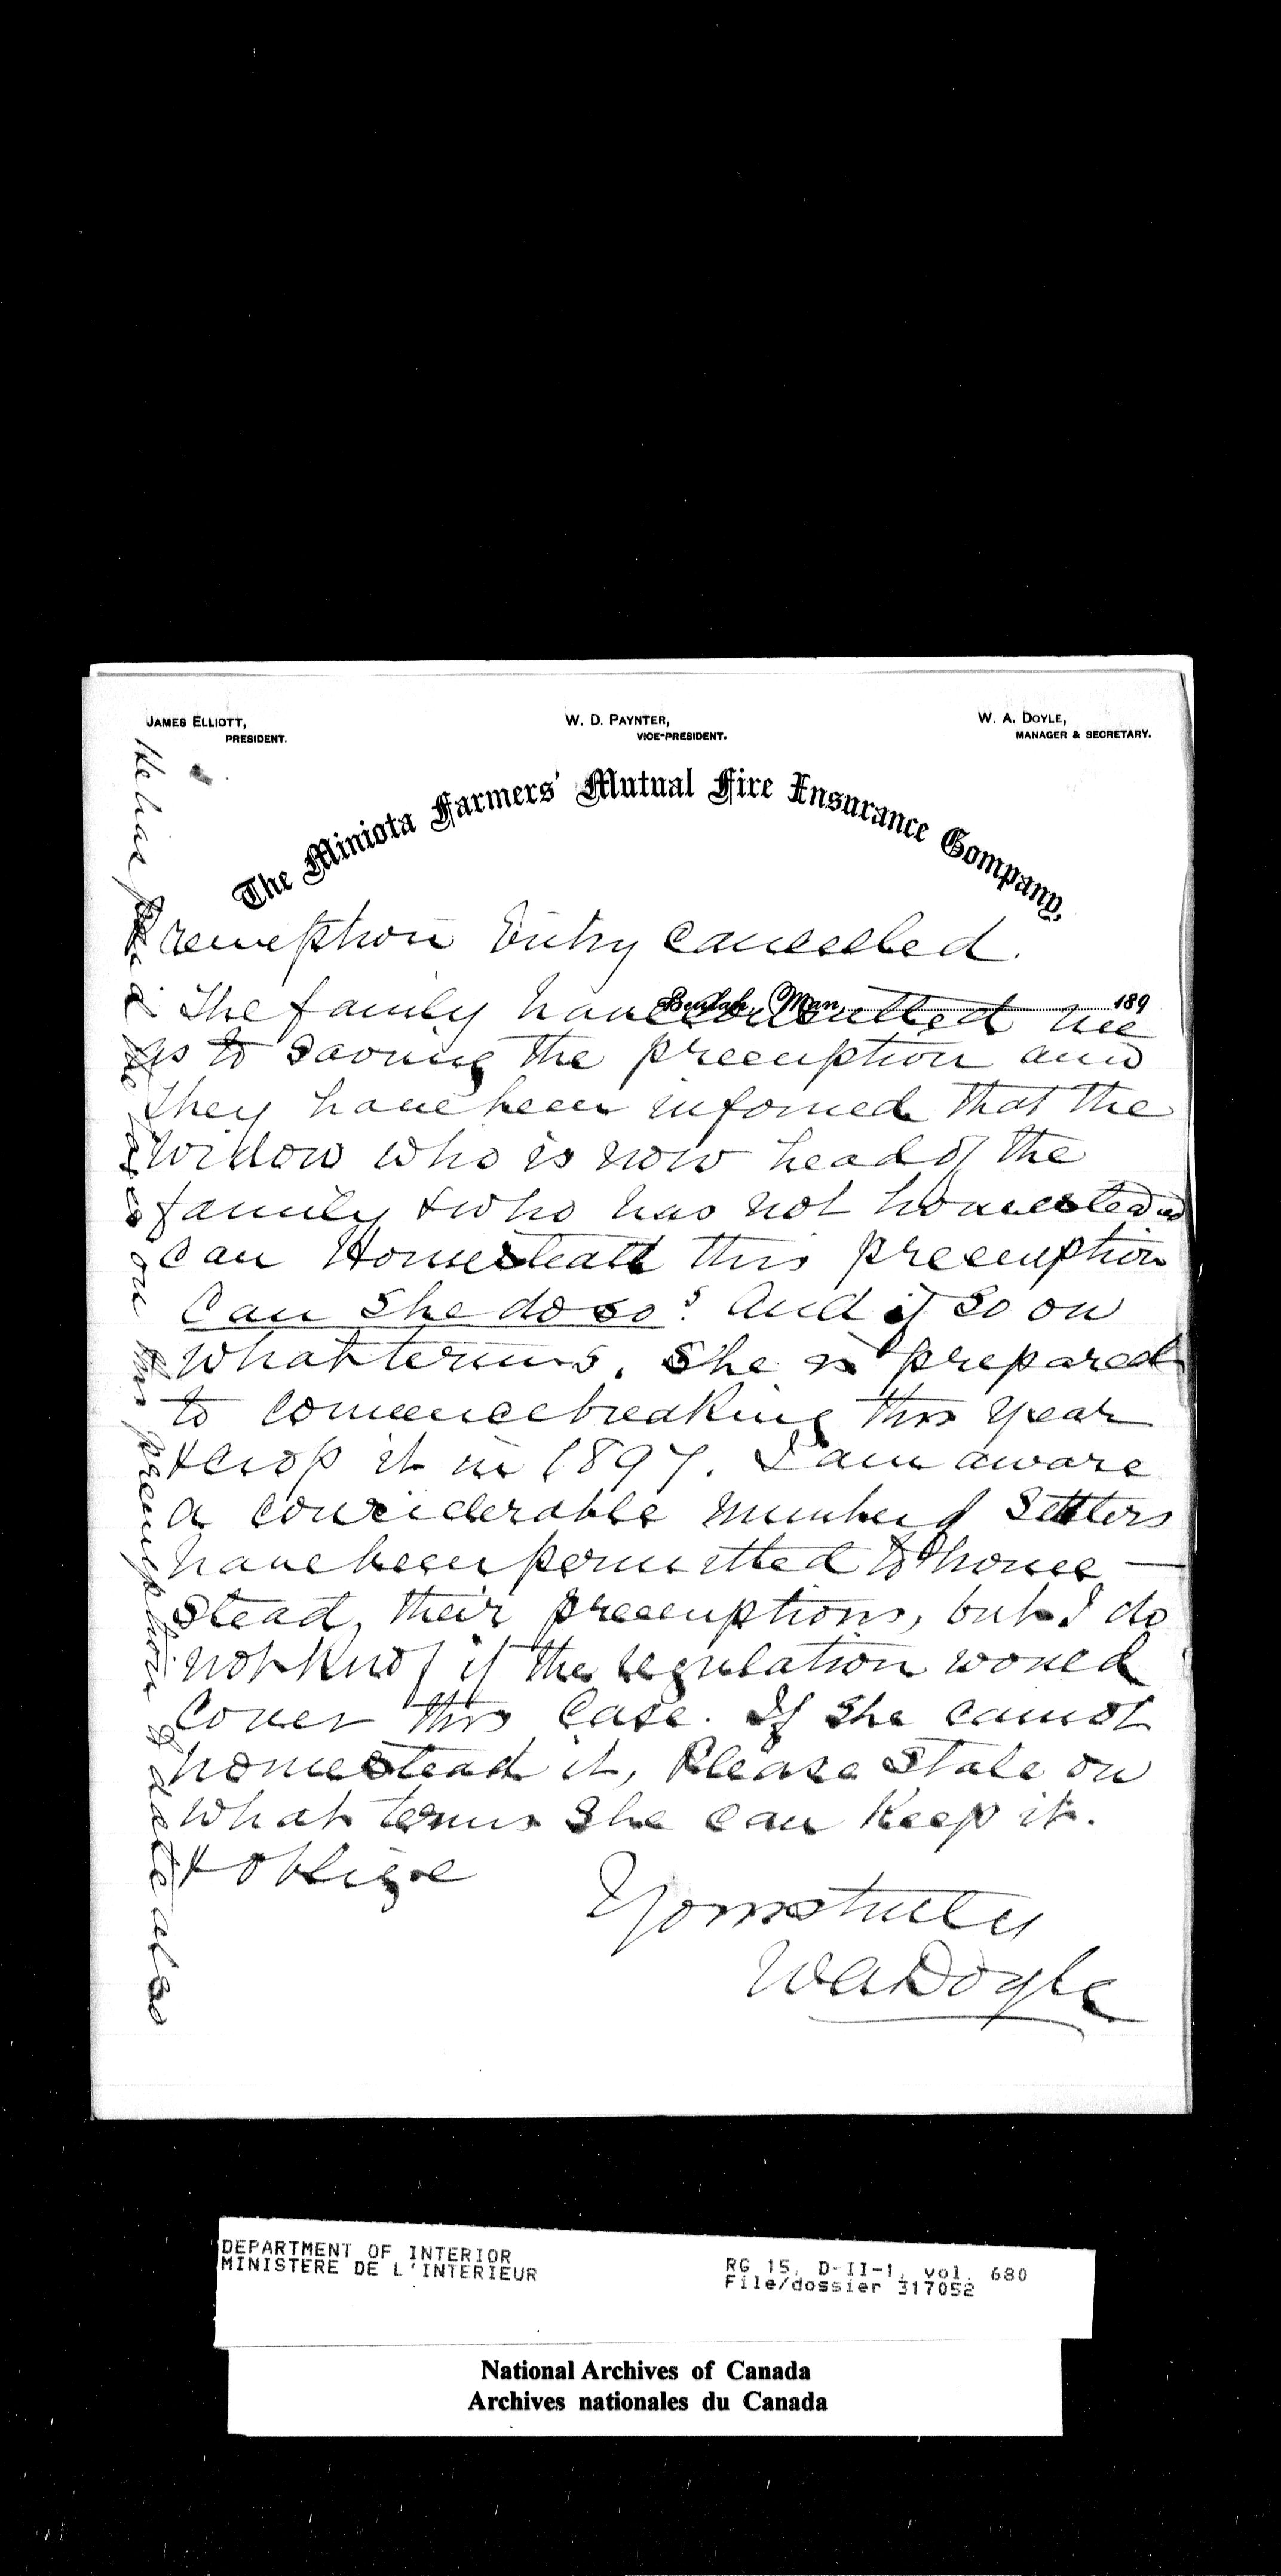 JAMES ELLIOTT,
PRESIDENT.
W. D. PAYNTER,
VICE-PRESIDENT.
W. A. DOYLE,
MANAGER & SECRETARY.
The Miniota Farmers' Mutual Fire Insurance Company,
Beulah, Man. 189
Preemption Entry cancelled.
The family have consulted me
as to saving the preemption and
they have been infomed that the
widow who is now head of the
family & who has not homestead
can Homestead this preemption
Can she do so? And if so on
what terms. She is prepared
to comence breaking this year
& crop it in 1897. I am aware
a considerable number of Settlers
have been permitted to home-
stead, their preemptions, but I do
not know if the regulation would
cover this Case. If she cannot
homestead it, Please State on
what terms she can Keep it.
& oblige
Yours truly
WA Doyle
He has paid taxes on this preemption to date also
DEPARTMENT OF INTERIOR
MINISTERE DE L'INTERIEUR
RG 15, D-II-1, vol. 680
File/dossier 317052
National Archives of Canada
Archives nationales du Canada